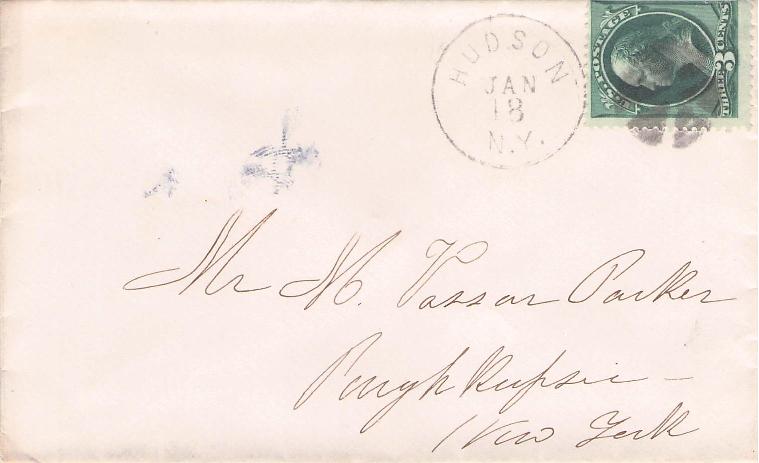 HUDSON
JAN
18
N.Y.
U.S. POSTAGE
THREE 3 CENTS
Mr M. Vassar Parker
Poughkeepsie –
New York